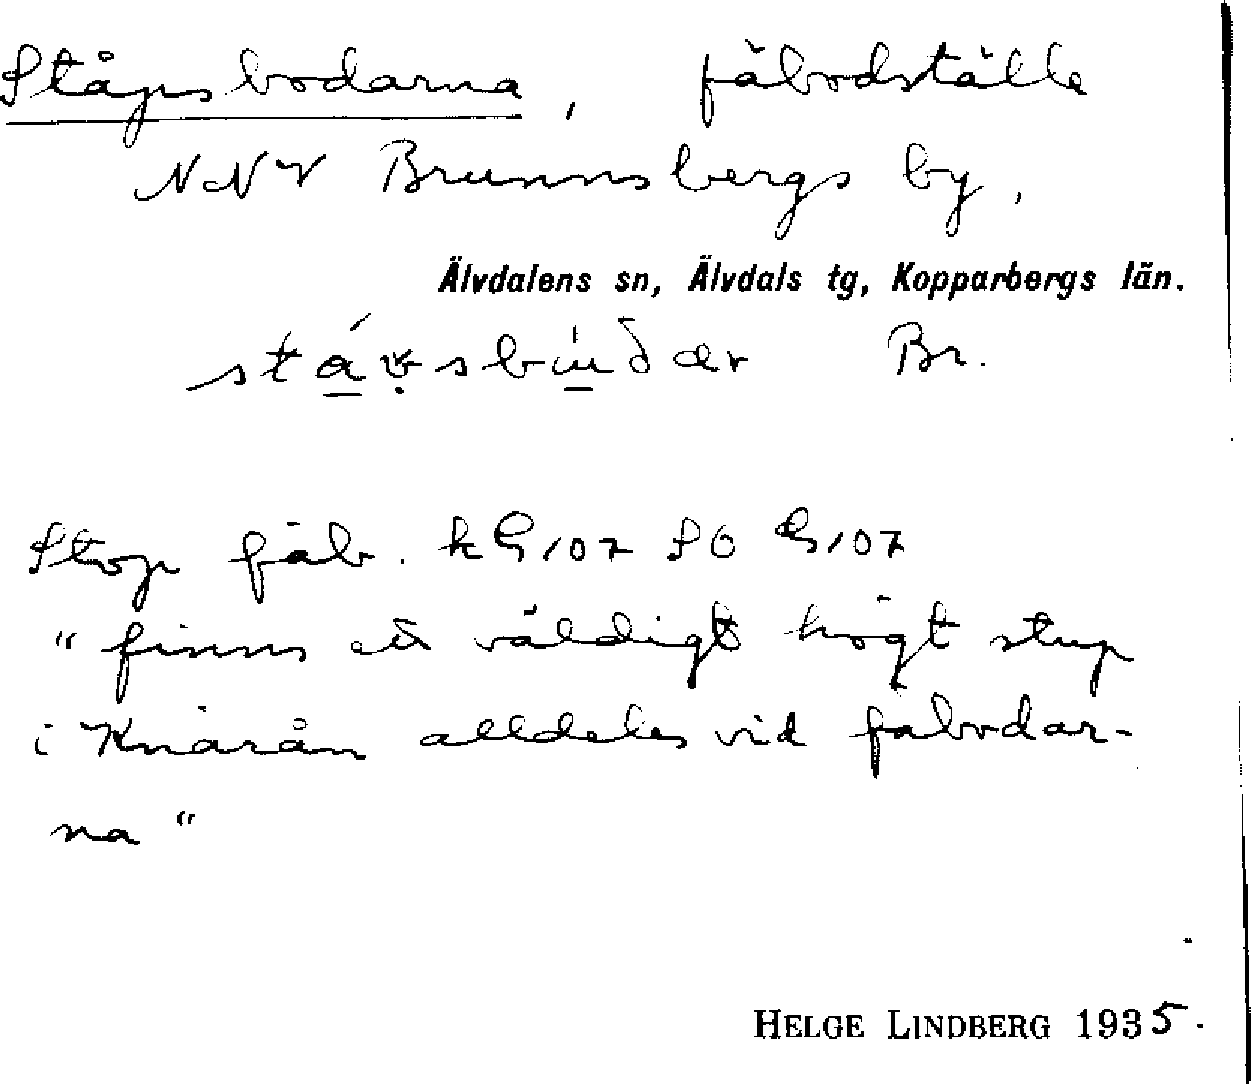 Ståpsbodarna, fäbodställe
NNV Brunnsbergs by,
Älvdalens sn, Älvdals tg, Kopparbergs län.
Br.
Stop fäb. kG107 SO G107
"finns ett väldigt högt stup
i Knärån alldeles vid fäbodar-
na"
HELGE LINDBERG 1935.